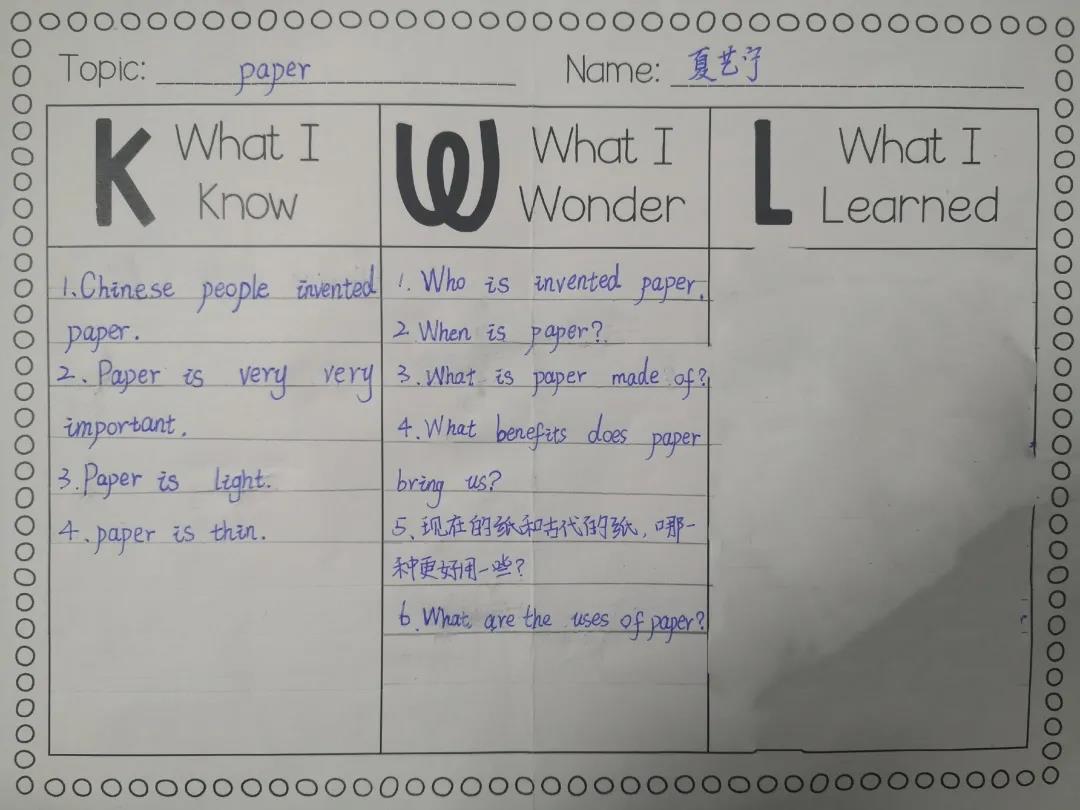 Topic: paper Name: 夏艺宁
K What I Know
W What I Wonder
L What I Learned
1.Chinese people invented
paper.
2、Paper is very very
important.
3.Paper is light.
4、paper is thin.
1. Who is invented paper.
2.When is paper?
3.What is paper made of?
4.What benefits does paper
bring us?
5、现在的纸和古代的纸，哪一
种更好用一些?
6.What are the uses of paper?